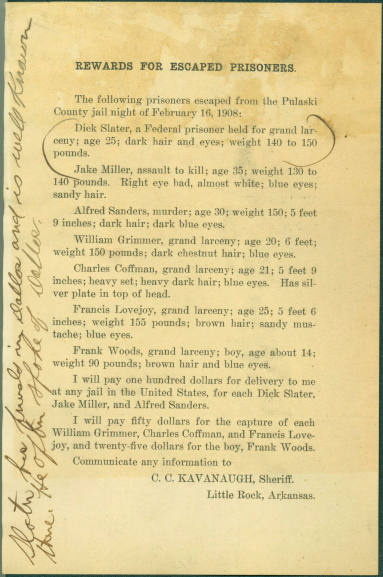 REWARDS FOR ESCAPED PRISONERS.
The following prisoners escaped from the Pulaski
County jail night of February 16, 1908:
Dick Slater, a Federal prisoner held for grand lar-
ceny; age 25; dark hair and eyes; weight 140 to 150
pounds.
Jake Miller, assault to kill; age 35; weight 130 to
140 pounds. Right eye bad, almost white; blue eyes;
sandy hair.
Alfred Sanders, murder; age 30; weight 150; 5 feet
9 inches; dark hair; dark blue eyes.
William Grimmer, grand larceny; age 20; 6 feet;
weight 150 pounds; dark chestnut hair; blue eyes.
Charles Coffman, grand larceny; age 21; 5 feet 9
inches; heavy set; heavy dark hair; blue eyes. Has sil-
ver plate in top of head.
Francis Lovejoy, grand larceny; age 25; 5 feet 6
inches; weight 155 pounds; brown hair; sandy mus-
tache; blue eyes.
Frank Woods, grand larceny; boy, age about 14;
weight 90 pounds; brown hair and blue eyes.
I will pay one hundred dollars for delivery to me
at any jail in the United States, for each Dick Slater,
Jake Miller, and Alfred Sanders.
I will pay fifty dollars for the capture of each
William Grimmer, Charles Coffman, and Francis Love-
joy, and twenty-five dollars for the boy, Frank Woods.
Communicate any information to
C. C. KAVANAUGH, Sheriff.
Little Rock, Arkansas.
Slater has friends in Dallas and is well Known
there. He often spoke of Dallas.